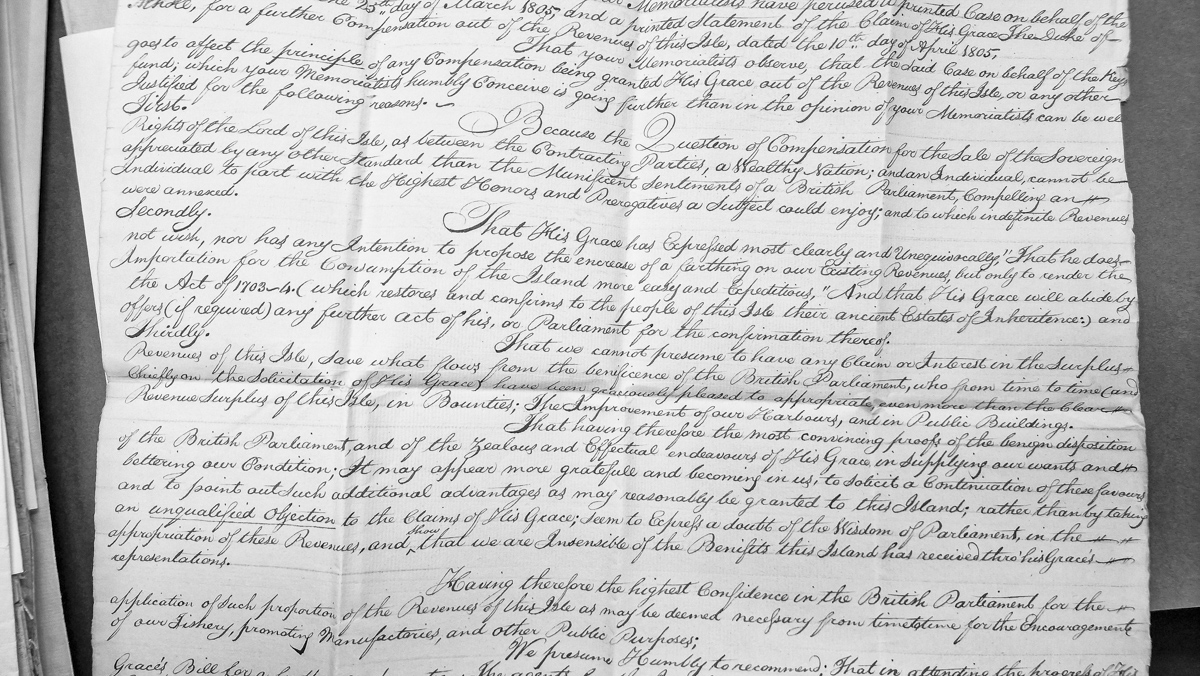 25th day of March 1805, and a printed Statement of the Claim of His Grace The Duke of
Athole, for a further Compensation out of the Revenues of this Isle, dated the 10th day of April 1805,
That your Memorialists observe, that the said Case on behalf of the Keys
goes to affect the principle of any Compensation being granted His Grace out of the Revenues of this Isle, or any other
fund; which your Memorialists humbly Conceive is going further than in the opinion of your Memorialists can be well
Justified for the following reasons. ~
First.
Because the Question of Compensation for the Sale of the Sovereign
Rights of the Lord of this Isle, as between the Contracting Parties, a Wealthy Nation; and an Individual, cannot be
appreciated by any other Standard than the Munificent Sentiments of a British Parliament, Compelling an
Individual to part with the Highest Honors and Prerogatives a Subject could enjoy; and to which indefinite Revenues
were annexed.
Secondly.
That His Grace has Expressed most clearly and Unequivocally, "That he does
not wish, nor has any Intention to propose the encrease of a farthing on our Existing Revenues, but only to render the
Importation for the Consumption of the Island more easy and Expeditious," And that His Grace will abide by
the Act of 1703-4. (which restores and confirms to the people of this Isle their ancient Estates of Inheritence:) and
offers (if required) any further act of his, or Parliament for the confirmation thereof.
Thirdly.
That we cannot presume to have any Claim or Interest in the Surplus
Revenues of this Isle, save what flows from the beneficence of the British Parliament, who from time to time (and
Chiefly on the Solicitation of His Grace) have been graciously pleased to appropriate, even more than the Clear
Revenue Surplus of this Isle, in Bounties; The Improvement of our Harbours, and in Public Buildings.
That having therefore the most convincing proofs of the benign disposition
of the British Parliament, and of the Zealous and Effectual endeavours of His Grace, in Supplying our wants and
bettering our Condition; It may appear more gratefull and becoming in us, to solicit a Continuation of these favours
and to point out Such additional advantages as may reasonably be granted to this Island; rather than by taking
an unqualified Objection to the Claims of His Grace; Seem to Express a doubt of the Wisdom of Parliament, in the
appropriation of these Revenues, and show that we are Insensible of the Benifits this Island has received thro' his Grace's
representations.
Having therefore the highest Confidence in the British Parliament for the
application of Such proportion of the Revenues of this Isle as may be deemed necessary from time to time for the Encouragement
of our Fishery, promoting Manufactories, and other Public Purposes;
We presume Humbly to recommend; That in attending the progress of His
Grace's Bill for a